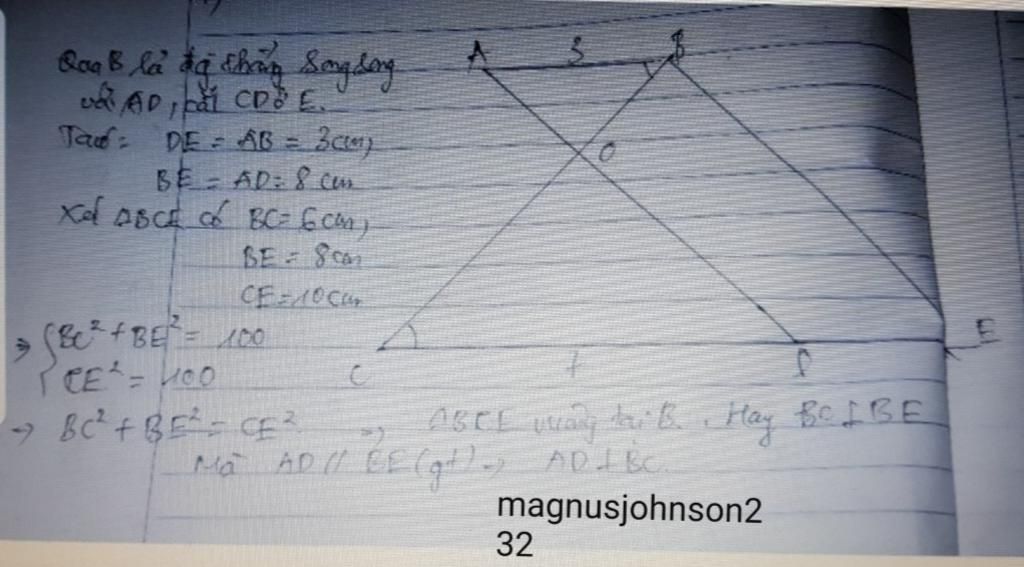 Qua B kẻ đg thẳng song song
với AD, cắt CD ở E.
Ta có: DE = AB = 3cm,
BE = AD = 8 cm
Xét ΔBCE có BC = 6cm,
BE = 8cm
CE = 10cm
⇒ { BC² + BE² = 100
CE² = 100
→ BC² + BE² = CE² ⇒ ΔBCE vuông tại B. Hay BC ⊥ BE
Mà AD // BE (gt) ⇒ AD ⊥ BC
A 3 B
O
C 7 D E
magnusjohnson2
32